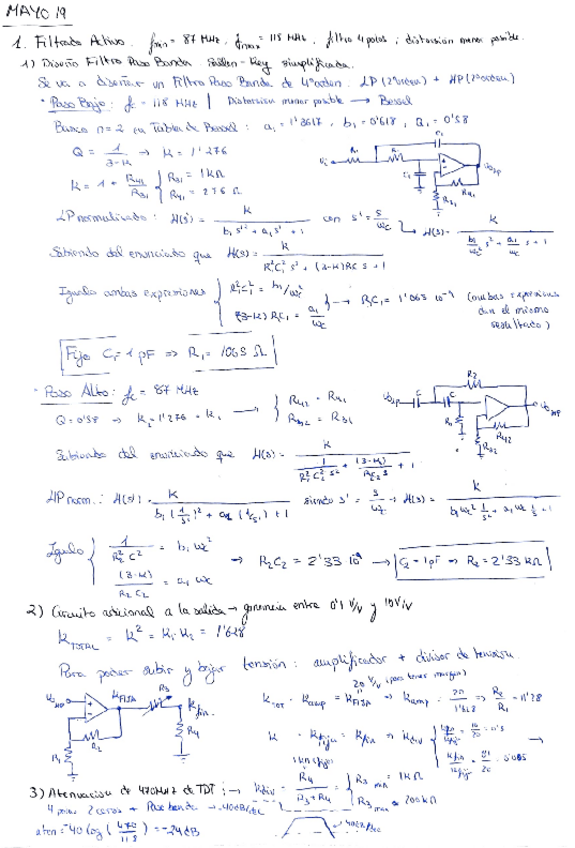 MAYO 19
1. Filtrado Activo. fmin = 87 MHz, fmax = 118 MHz, filtro 4 polos; distorsión menor posible.
1) Diseño Filtro Paso Banda. Sallen-Key simplificada.
Se va a diseñar un Filtro Paso Banda de 4º orden. LP (2º orden) + HP (2º orden)
· Paso Bajo: fc = 118 MHz | Distorsion menor posible → Bessel
Busco n=2 en Tablas de Bessel: a1 = 1'3617, b1 = 0'618, Q1 = 0'58
Q = 1/(3-K) → K = 1'276
K = 1 + R41/R31 { R31 = 1KΩ
R41 = 276 Ω
LP normalizado: H(s') = K/(b1 s'² + a1 s' + 1) con s' = s/ωc → H(s) = K/(b1/ωc² s² + a1/ωc s + 1)
Sabiendo del enunciado que H(s) = K/(R1²C1² s² + (3-K)RC s + 1)
Igualo ambas expresiones { R1²C1² = b1/ωc²
(3-K) RC1 = a1/ωc } → R1C1 = 1'063 10⁻⁹ (ambas expresiones dan el mismo resultado)
Fijo C1 = 1 pF ⇒ R1 = 1063 Ω
· Paso Alto: fc = 87 MHz
Q = 0'58 → K2 = 1'276 = K1 → { R42 = R41
R32 = R31
Sabiendo del enunciado que H(s) = K/(1/(R2²C2² s²) + (3-K)/(R2C2 s) + 1)
HP norm.: H(s') = K/(b1 (1/s')² + a1 (1/s') + 1) siendo s' = s/ωc → H(s) = K/(b1 ωc² 1/s² + a1 ωc 1/s + 1)
Igualo { 1/(R2²C²) = b1 ωc²
(3-K)/(R2C2) = a1 ωc → R2C2 = 2'33 10⁻⁹ → C2 = 1pF ⇒ R2 = 2'33 KΩ
2) Circuito adicional a la salida → ganancia entre 0'1 V/V y 10 V/V
KTOTAL = K² = K1·K2 = 1'628
Para poder subir y bajar tensión: amplificador + divisor de tensión.
20 V/V (para tener margen)
KTOT · Kamp = KFIJA ⇒ Kamp = 20/1'628 ⇒ R2/R1 = 11'28
3) Atenuacion de 470MHz de TDT: → Kdiv = R4/(R3+R4) = { R3 min = 1KΩ
R3 max = 200KΩ
4 polos 2 ceros + Paso banda → -40dB/dec
aten = -40 log (470/118) = -24 dB